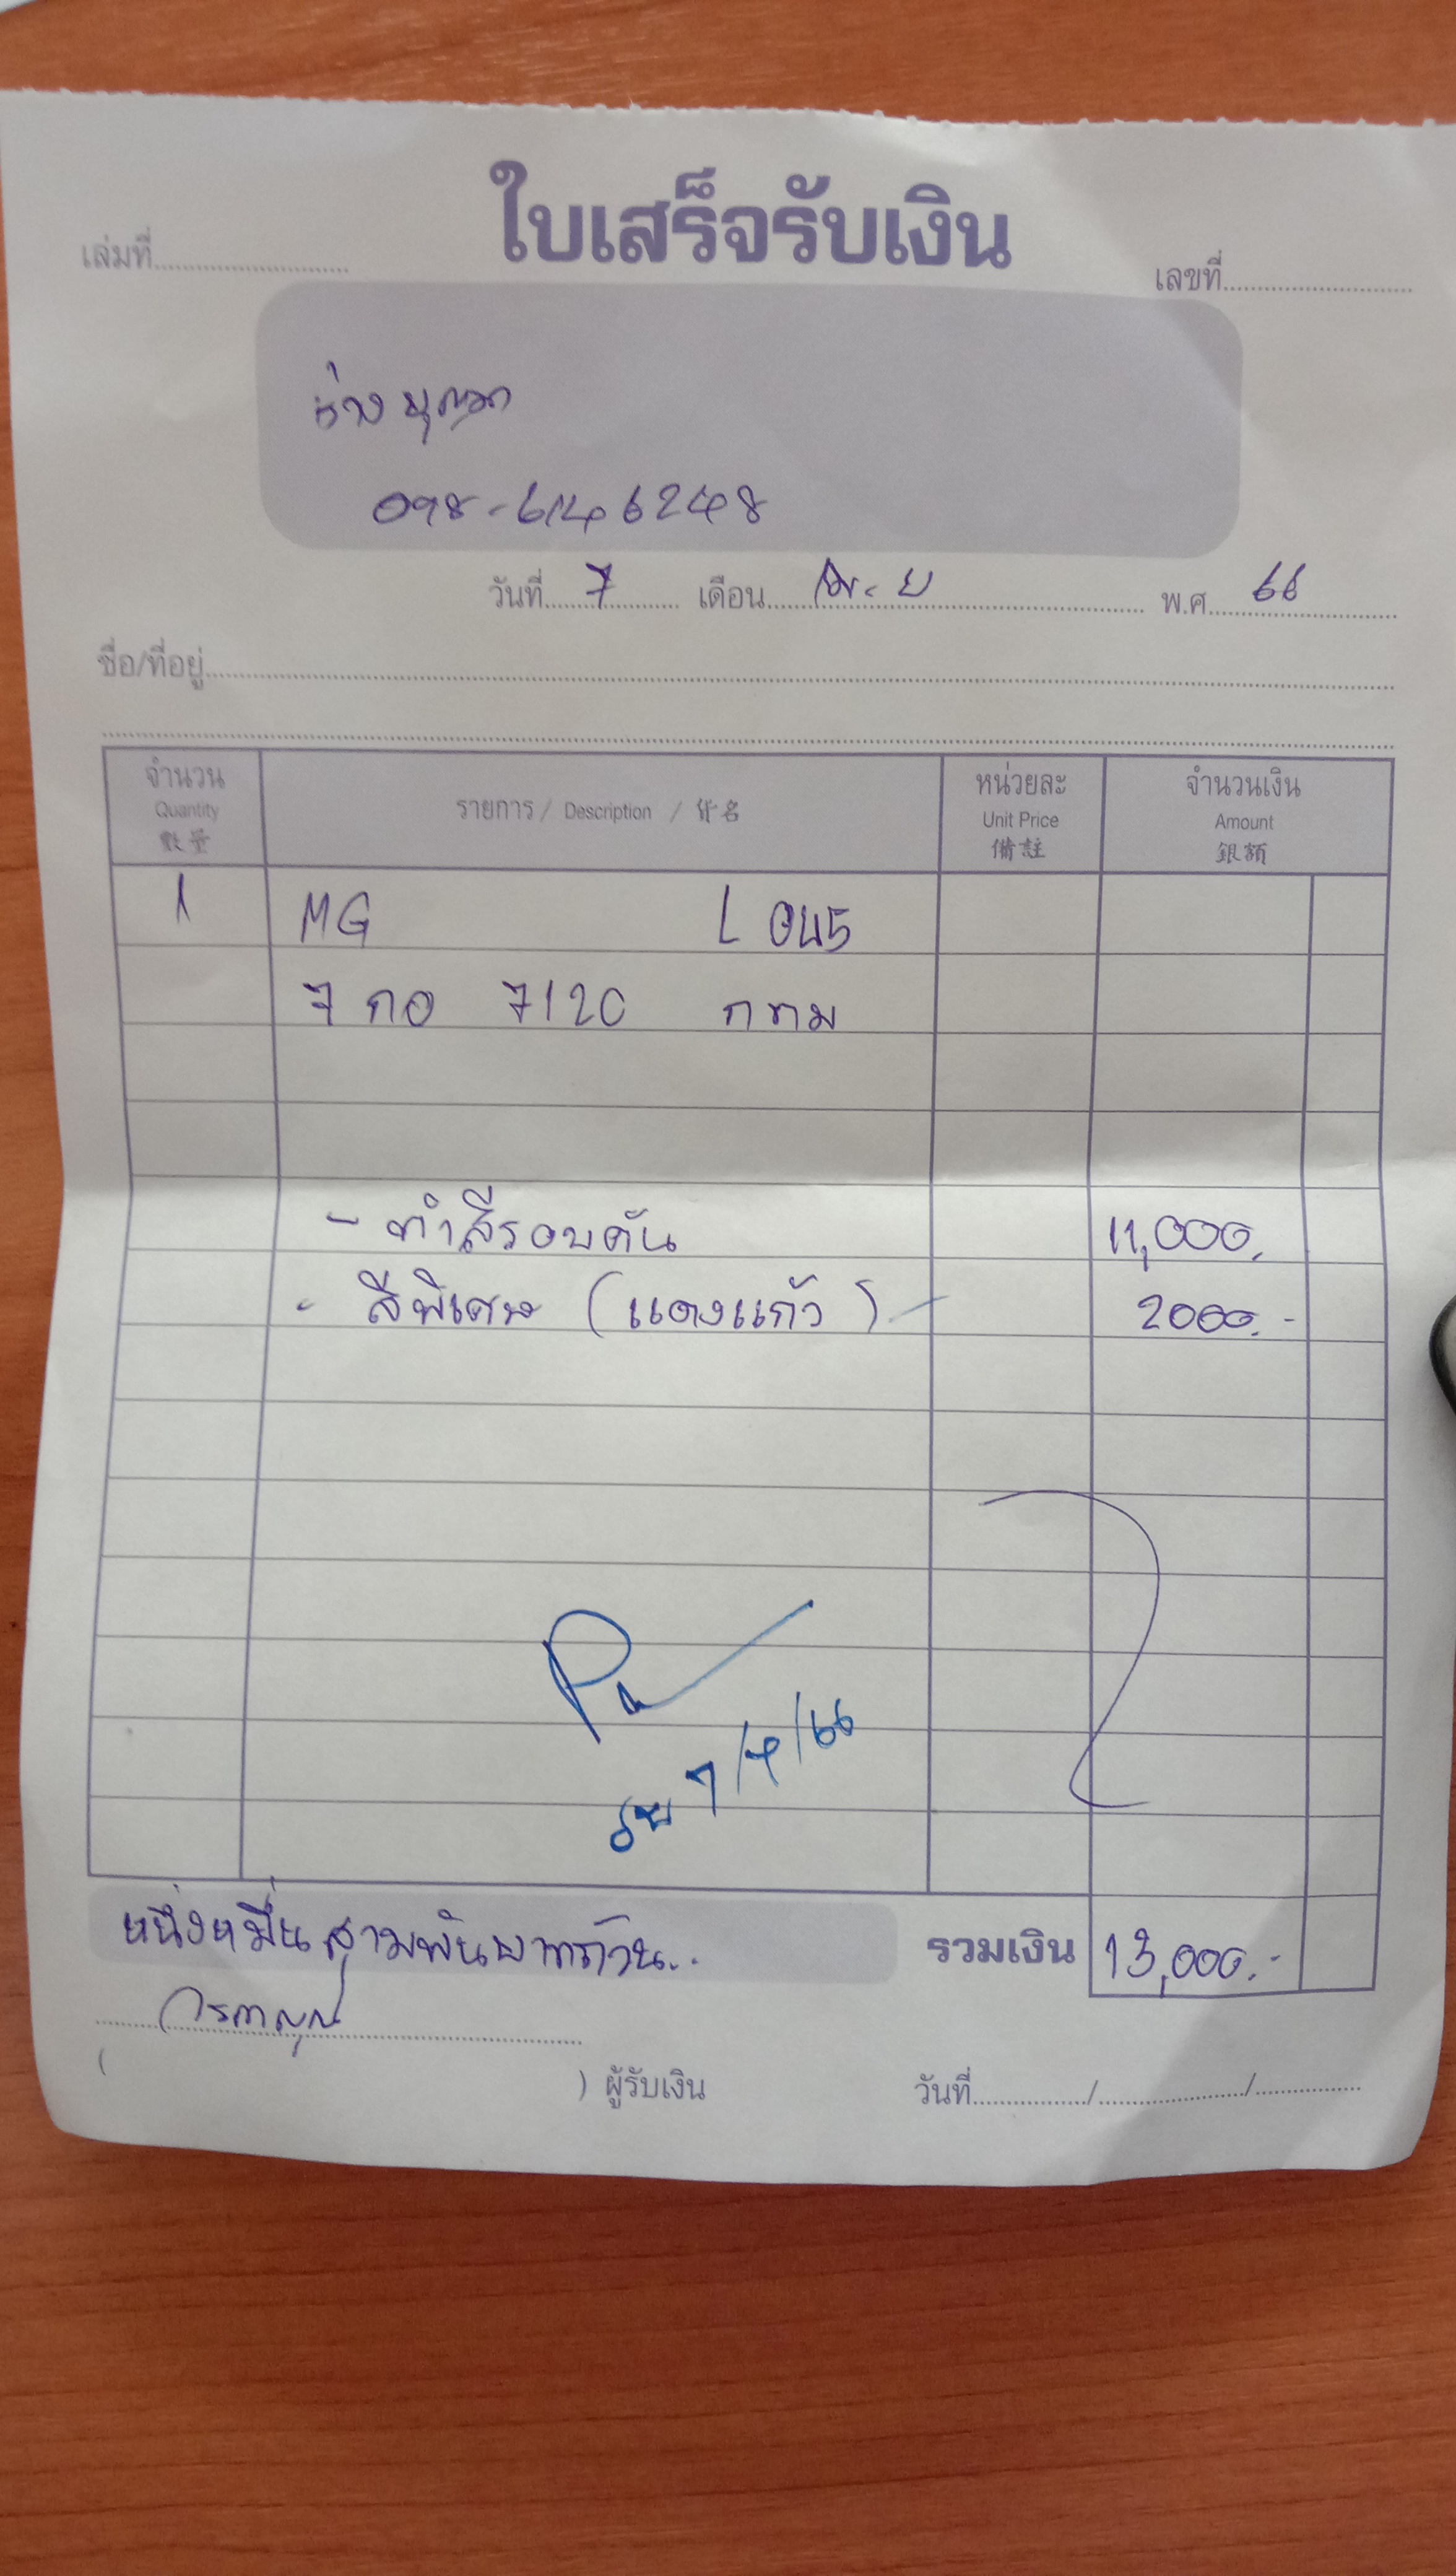 ใบเสร็จรับเงิน
เล่มที่
เลขที่
ช่าง
098-6146248
วันที่ 7 เดือน เม.ย พ.ศ. 66
ชื่อ/ที่อยู่
จำนวน รายการ / Description / 件名 หน่วยละ จำนวนเงิน
Quantity Unit Price Amount
數量 備註 銀額
1 MG L 045
7 กอ 7120 กทม
- ทำสีรอบคัน 11,000.
- สีพิเศษ (แดงแก้ว) 2000.-
7/4/66
หนึ่งหมื่นสามพันบาทถ้วน.. รวมเงิน 13,000.-
( ) ผู้รับเงิน วันที่ / /